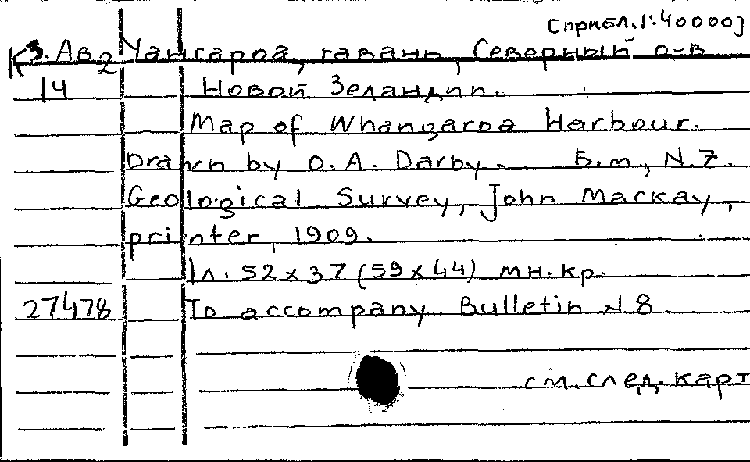 [прибл. 1:40000]
К3. Ав2 Уангароа, гавань, Северный о-в
14 Новой Зеландии.
Map of Whangaroa Harbour.
Drawn by O. A. Darby. Б.м., N.Z.
Geological Survey, John Mackay,
printer, 1909.
1л. 52x37 (59x44) мн. кр.
27478 To accompany Bulletin N 8
см. след. карт